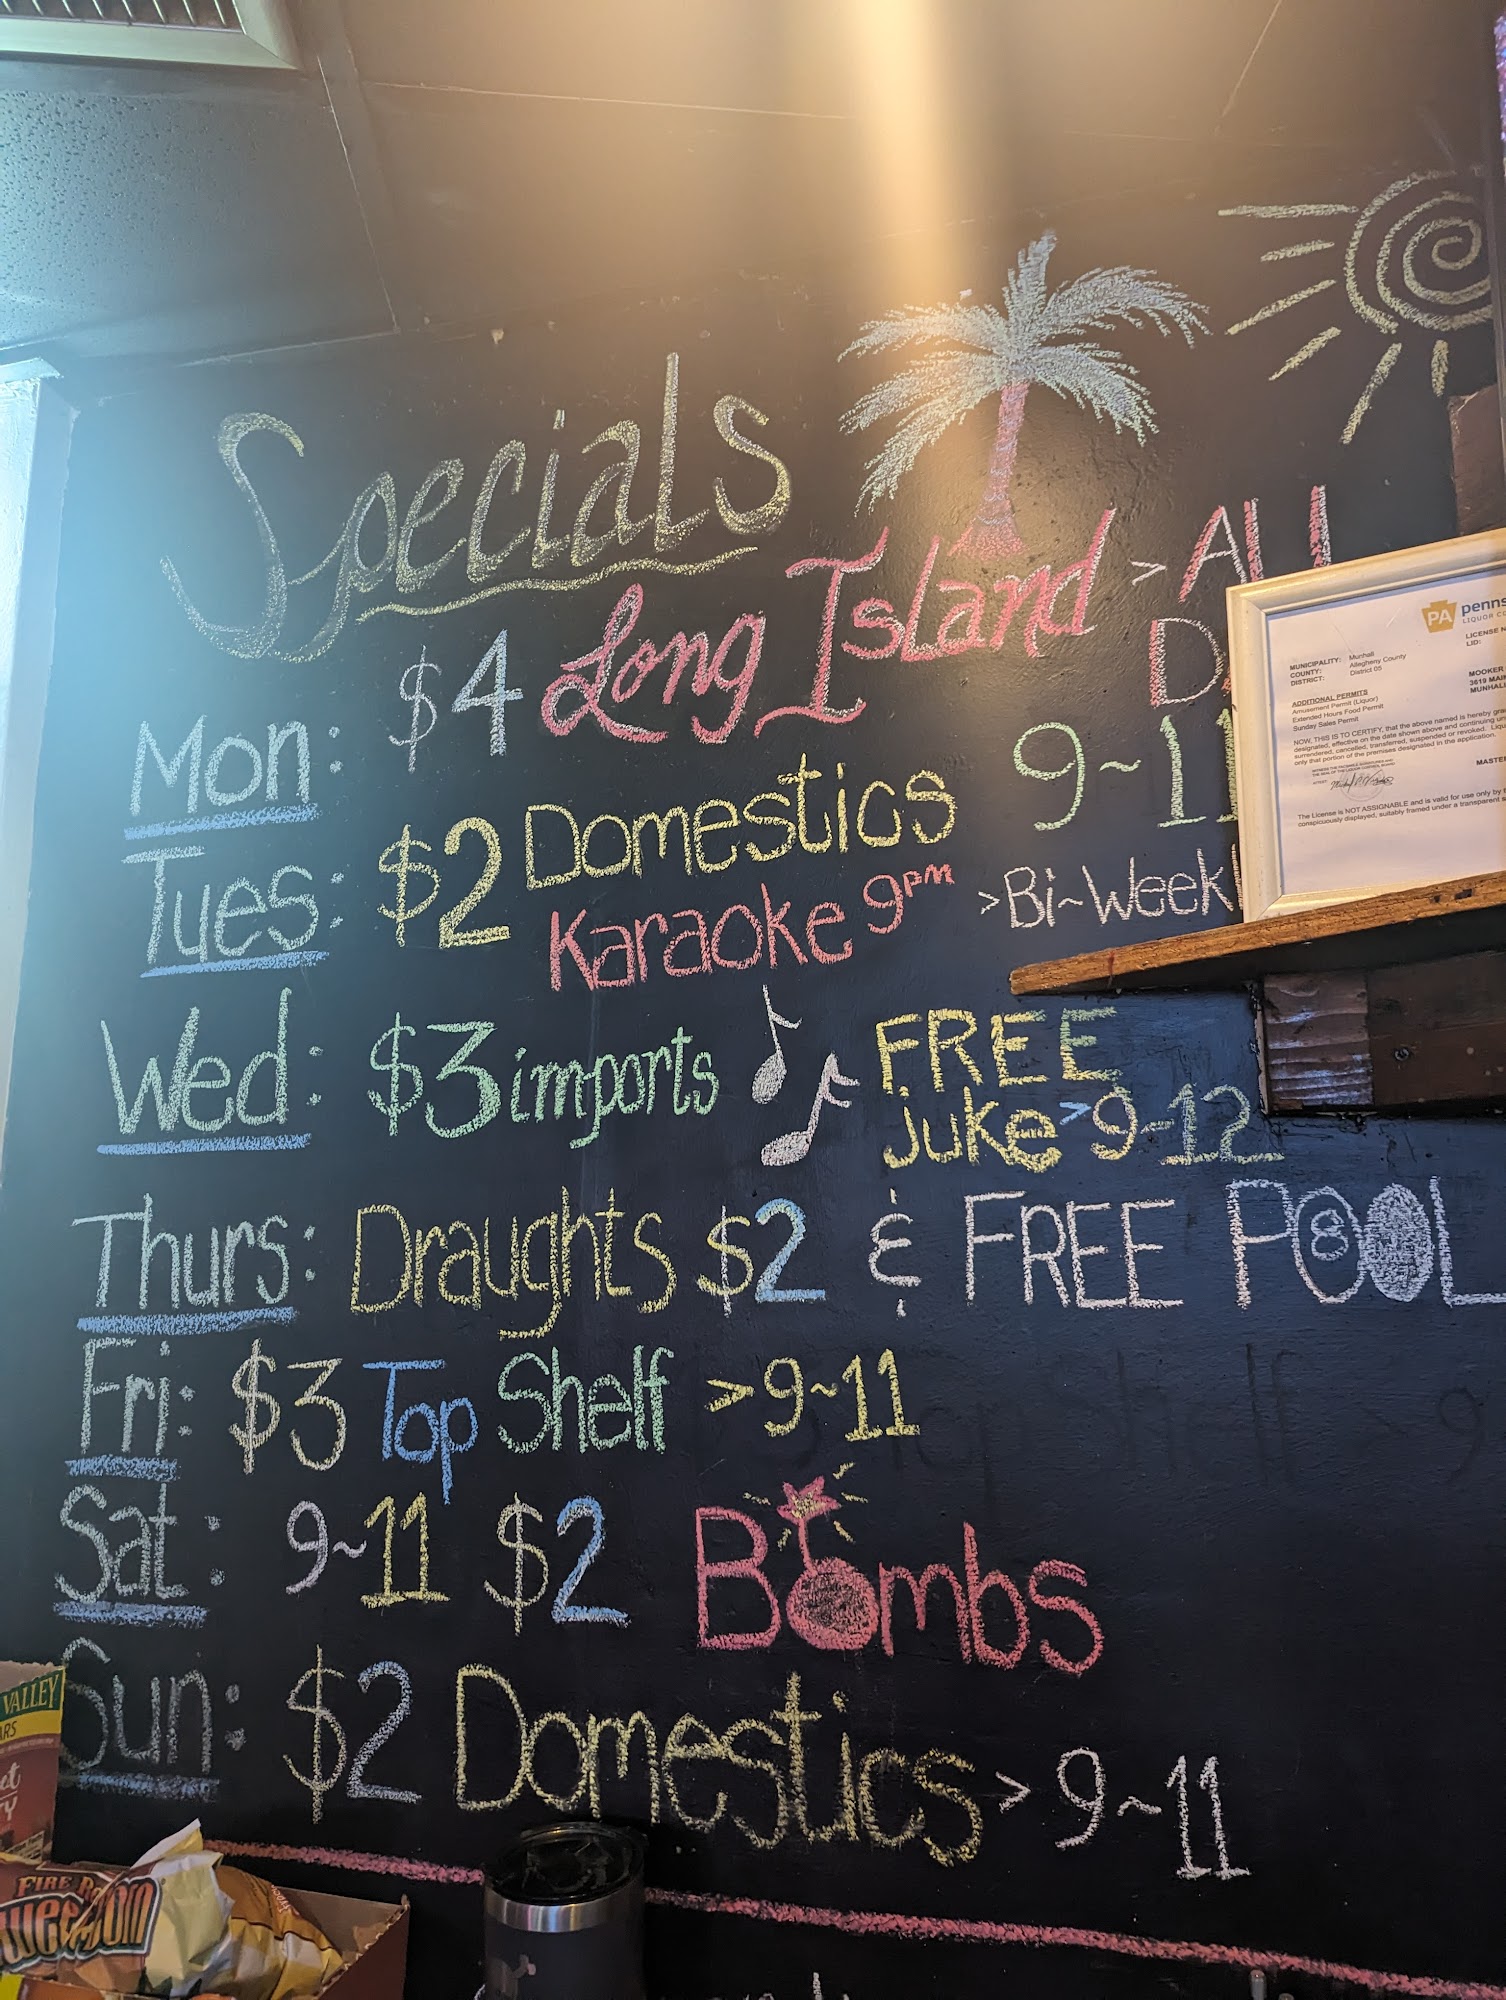 Specials
Mon: $4 Long Island > All
Tues: $2 Domestics 9~11
Karaoke 9pm >Bi~Week
Wed: $3 imports FREE
Juke > 9-12
Thurs: Draughts $2 & FREE POOL
8
Fri: $3 Top Shelf > 9~11
Sat: 9~11 $2 Bombs
Sun: $2 Domestics > 9~11
PA penns
LIQUOR CO
LICENSE N
LID:
MUNICIPALITY: Munhall
COUNTY: Allegheny County
DISTRICT: District 05
MOOKER
3619 MAIN
MUNHALL
ADDITIONAL PERMITS
Amusement Permit (Liquor)
Extended Hours Food Permit
Sunday Sales Permit
NOW, THIS IS TO CERTIFY, that the above named is hereby gra
designated, effective on the date shown above and continuing un
surrendered, cancelled, transferred, suspended or revoked. Liqu
only that portion of the premises designated in the application.
MASTER
ATTEST:
The License is NOT ASSIGNABLE and is valid for use only by t
conspicuously displayed, suitably framed under a transparent s
VALLEY
FIRE